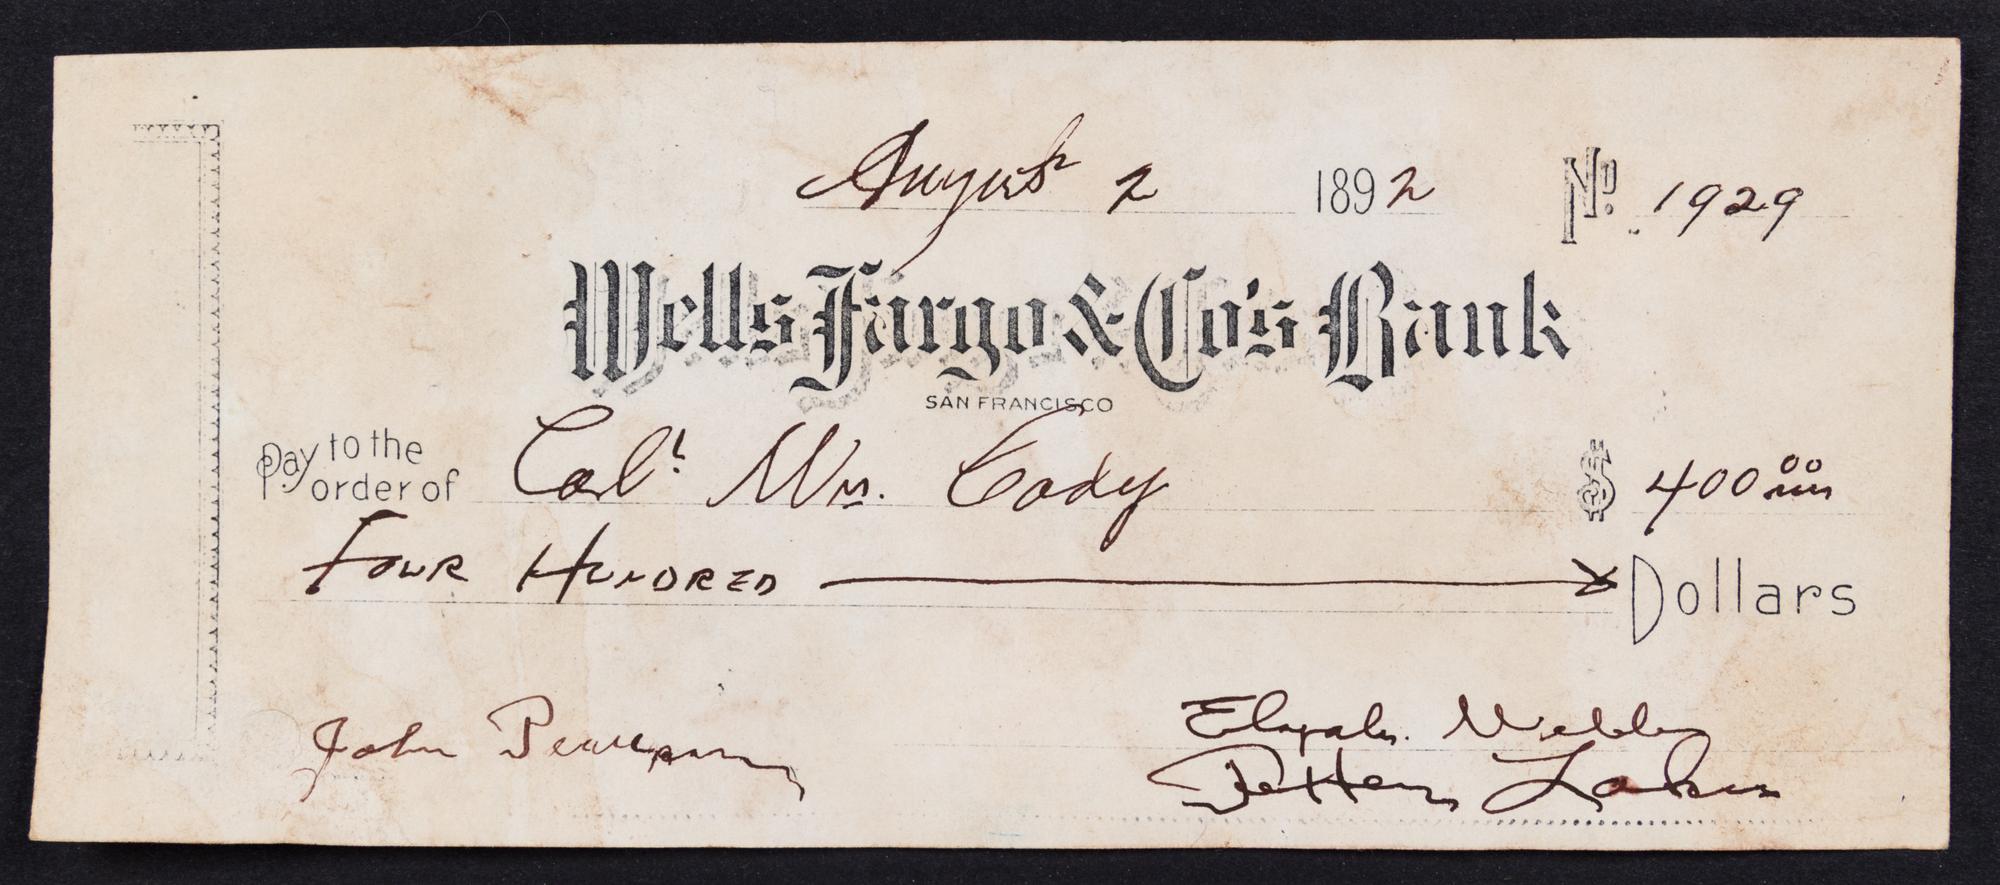 August 2 1892 No. 1929
Wells Fargo & Co's Bank
SAN FRANCISCO
Pay to the order of Col! Wm. Cody $ 400 00
FOUR HUNDRED Dollars
John
Elijah.